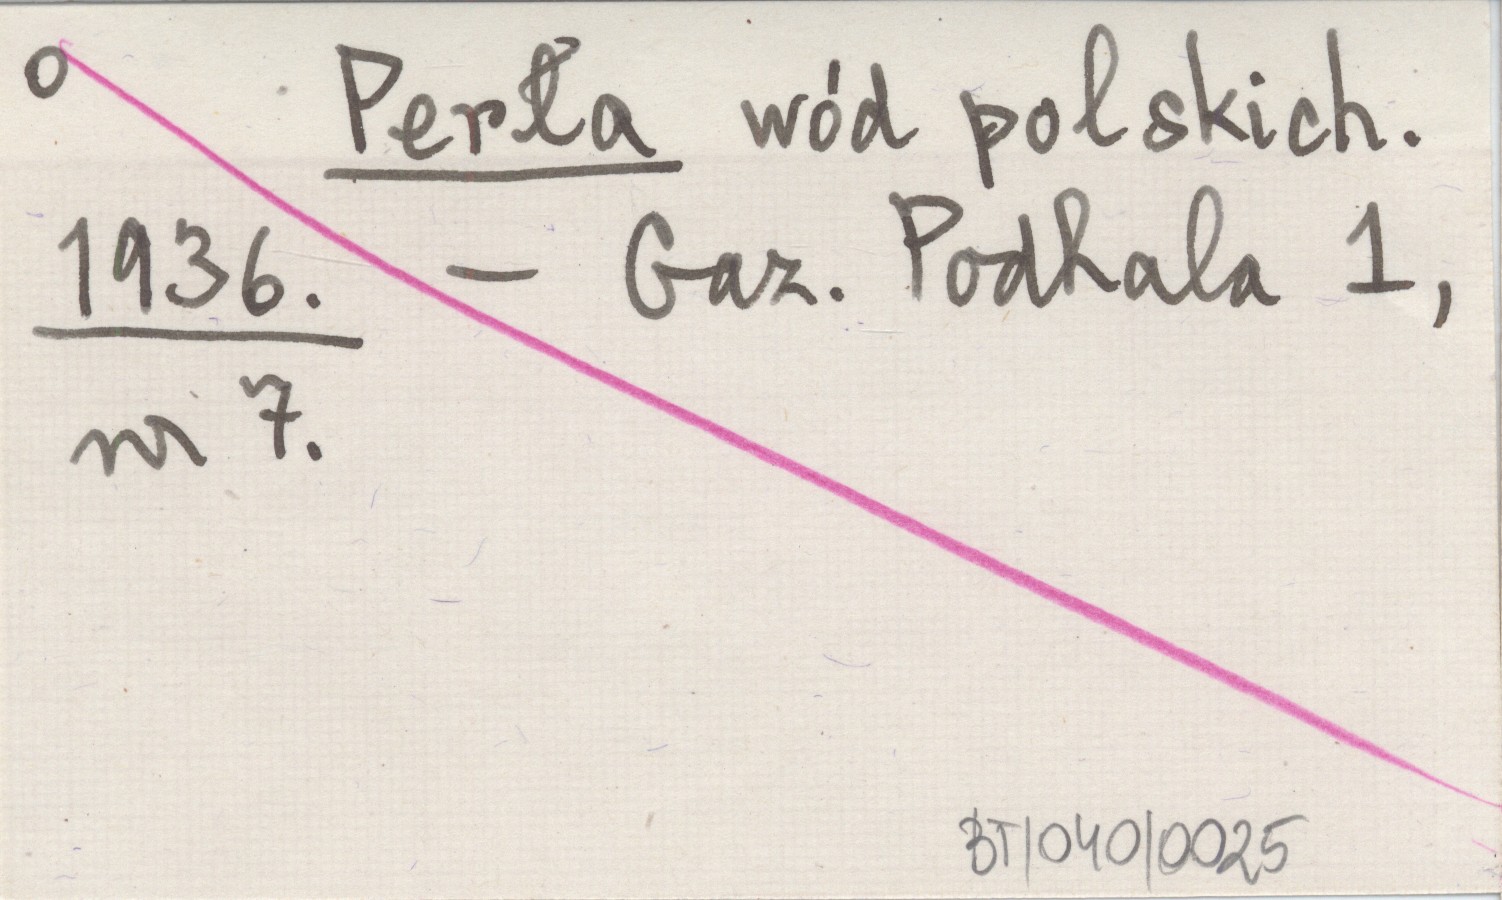 o Perła wód polskich.
1936. — Gaz. Podhala 1,
nr 7.
BT/040/0025